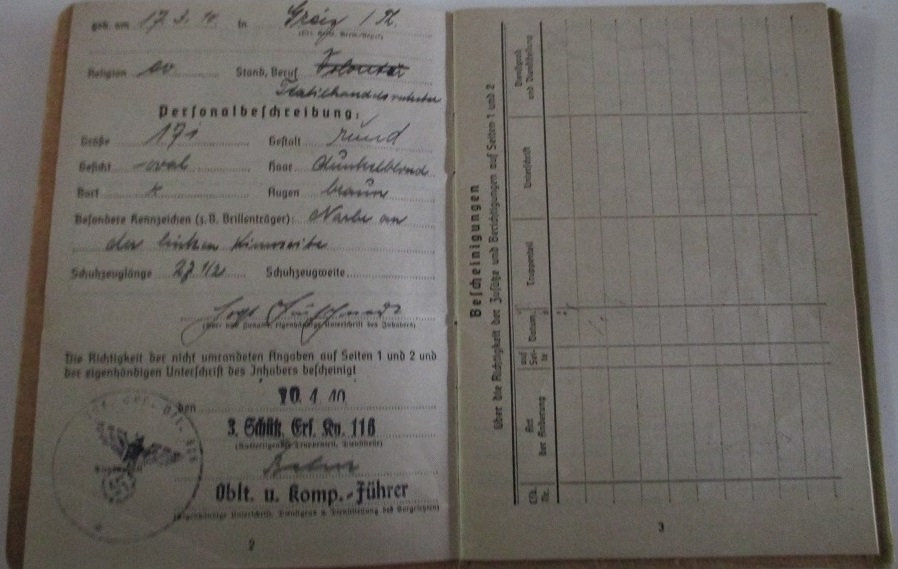 geb. am 17.3. in Greiz / Th.
(Ort, Kreis, Verw.-Bezirk)
Religion ev Stand, Beruf
Personalbeschreibung:
Größe 171 Gestalt
Gesicht oval Haar dunkelblond
Bart k Augen braun
Besondere Kennzeichen (z. B. Brillenträger): Narbe an
der linken Kinnseite
Schuhzeuglänge 27 1/2 Schuhzeugweite
(Vor- und Zuname, eigenhändige Unterschrift des Inhabers)
Die Richtigkeit der nicht umrandeten Angaben auf Seiten 1 und 2 und
der eigenhändigen Unterschrift des Inhabers bescheinigt
den 10. 4. 40
3. Schütz. Ers. Kp. 116
(Ausfertigender Truppenteil, Dienststelle)
Oblt. u. Komp.-Führer
(Eigenhändige Unterschrift, Dienstgrad u. Dienststellung des Vorgesetzten)
2
Bescheinigungen
über die Richtigkeit der Zusätze und Berichtigungen auf Seiten 1 und 2
Lfd. Nr.
Art der Änderung
auf Seite
Datum
Truppenteil
Unterschrift
Dienstgrad und Dienststellung
3